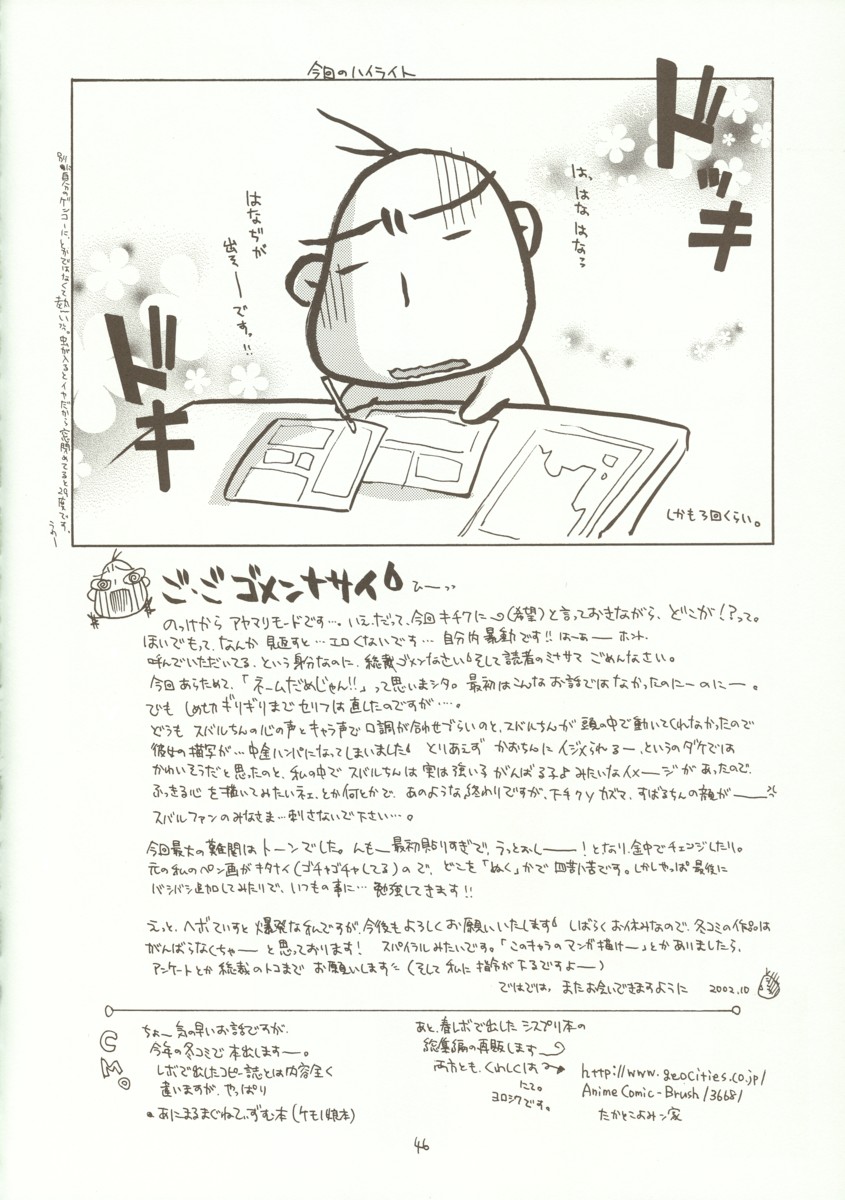 今回のハイライト
ドッキ
は、はなはなっ
はなぢが
出そーですッ!!
ドキ
しかも3回くらい。
別に自分のゲンコーに、とかではなくて熱いた。虫が入るとイヤだから窓閉めてると29度です。
うおー
ご・ごゴメンナサイ ひーっっ
のっけから アヤマリモードです…。いえ、だって、今回キチクに(希望)と言っておきながら、どこが!?って。
ほいでもって、なんか 見返すと… エロくないです… 自分内暴動です!! はーぁー ホント、
呼んでいただいてる、という身分なのに、総裁ゴメンなさい そして読者のミナサマ ごめんなさい。
今回あらためて、「ネームだめじゃん!!」って思いまシタ。最初はこんなお話ではなかったのにーのにー。
でも しめ切ギリギリまで セリフは直したのですが…。
どうも スバルちんの心の声とキャラ声で口調が合わせづらいのと、スバルちんが 頭の中で動いてくれなかったので
彼女の描写が… 中途ハンパになってしまいました とりあえず かおちんに イジメられるー、というのダケでは
かわいそうだと思ったのと、私の中で スバルちんは 実は強い子 がんばる子♪みたいなイメージがあったので、
ふっきる心 を描いてみたいネェ、とか何とかで、あのような終わりですが、下チクy カズマ、すばるちんの顔がーー
スバルファンのみなさま… 刺さないで下さい…。
今回最大の難関は トーンでした。んもー 最初貼りすぎで、うっとおしーー!となり、途中でチェンジしたり。
元の私のペン画がキタナイ(ゴチャゴチャしてる)ので、どこを「ぬく」かで 四苦八苦です。しかしやっぱ最後に
バシバシ追加してみたりで、いつもの事に… 勉強してきます!!
えっと、ヘボていすと 爆発な私ですが、今後もよろしくお願いいたします しばらくお休みなので、冬コミの作品は
がんばらなくちゃー と思っております! スパイラルみたいです。「このキャラのマンガ描けー」とかありましたら、
アンケートとか 総裁のトコまで お願いします (そして私に 指令が下るですよー)
ではでは、またお会いできますように 2002.10
CM。
ちょー気の早いお話ですが、
今年の冬コミで 本出しますー。
レボで出したコピー誌とは内容全く
違いますが、やっぱり
●あにまるまぐねてぃずむ本(ケモノ娘本)
あと、春レボで出した シスプリ本の
総集編の再販します
両方とも、くわしくは→
http://www.geocities.co.jp/
AnimeComic-Brush/3668/
にて。
ヨロシクです。
たかとこよみン家
46